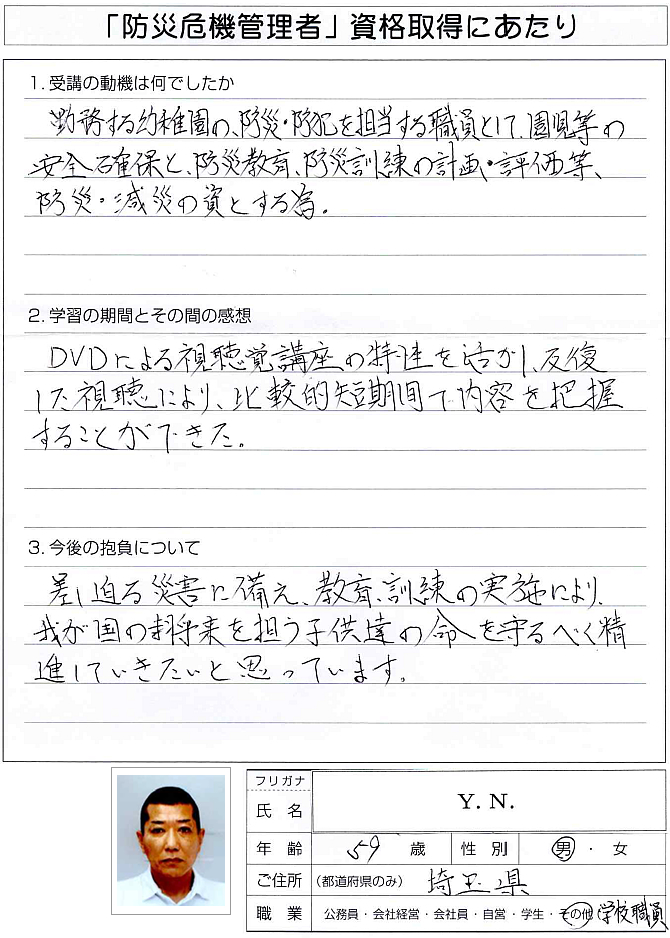 「防災危機管理者」資格取得にあたり
1. 受講の動機は何でしたか
勤務する幼稚園の、防災・防犯を担当する職員として、園児等の
安全確保と、防災教育、防災訓練の計画・評価等、
防災・減災の資とする為。
2. 学習の期間とその間の感想
DVDによる視聴覚講座の特性を活かし、反復
した視聴により、比較的短期間で内容を把握
することができた。
3. 今後の抱負について
差し迫る災害に備え、教育、訓練の実施により、
我が国の将来を担う子供達の命を守るべく精
進していきたいと思っています。
フリガナ
氏名 Y. N.
年齢 59 歳 性別 男・女
ご住所 (都道府県のみ) 埼玉県
職業 公務員・会社経営・会社員・自営・学生・その他( 学校職員